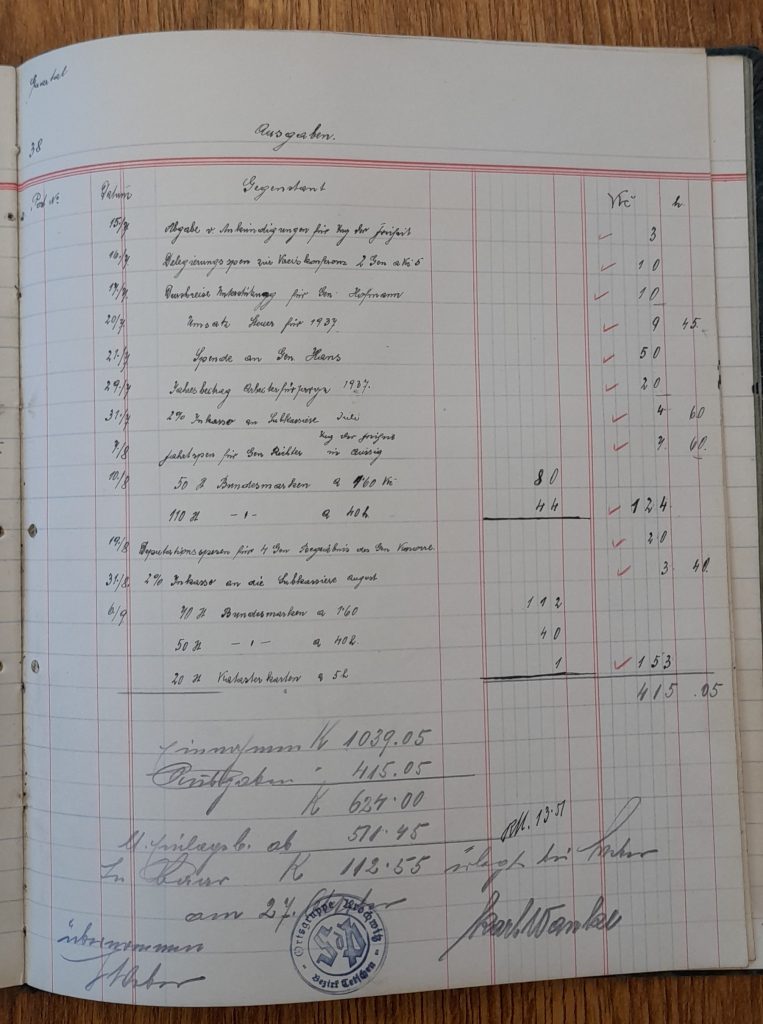 Quartal
38
Ausgaben.
Post No. Datum Gegenstant Kč h
15/7 Abgabe v. Ankündigungen für Tag der Freiheit 3
16/7 Delegierungsspesen zur Kreiskonferenz 2 Gen a Kč 5 10
17/7 Durchreise Unterstützung für Gen. Hofmann 10
20/7 Umsatz Steuer für 1937. 9 45.
21/7 Spende an Gen. Hans 50
29/7 Jahresbeitrag Arbeiterfürsorge 1937. 20
31/7 2% Inkasso an Subkassiere Juli 4 60
7/8 Fahrtspesen für Gen Richter Tag der Freiheit in Aussig 7. 60.
10/8 50 H Bundesmarken a 1'60 Kč 80
110 H -"- a 40h 44 124
19/8 Deputationsspesen für 4 Gen Begräbnis des Gen 20
31/8 2% Inkasso an die Subkassiere August 3 40.
6/9 70 H Bundesmarken a 1'60 112
50 H -"- a 40h. 40
20 H Katasterkarten a 5h 1 153
415 .05
Einnahmen K 1039.05
Ausgaben " 415.05
K 624.00
lt. Einlagsb. ab 511.45
In Baar K 112.55 erlegt bei Weber
am 27. Oktober
übernommen
Weber
Karl Wanke
Ortsgruppe Kroschwitz
Bezirk Tetschen